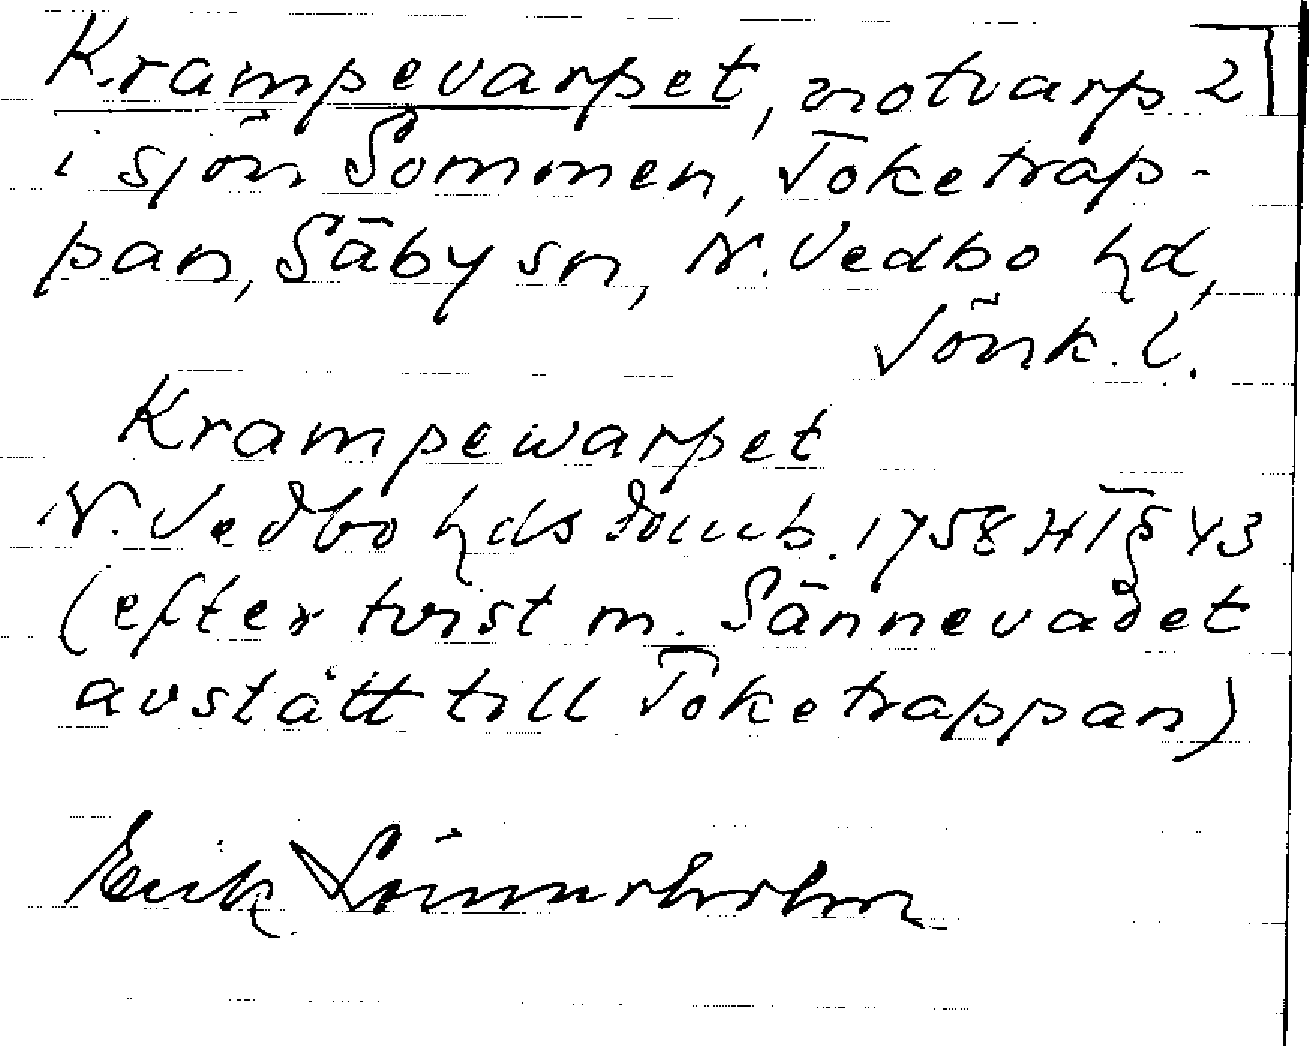 Krampevarpet, notvarp 2
i sjön Sommen, Toketrap-
pan, Säby sn, N. Vedbo hd,
Jönk. l.
Krampewarpet
N. Vedbo hds domb. 1758 HT § 43
(efter tvist m. Sännevadet
avstått till Toketrappan)
Erik